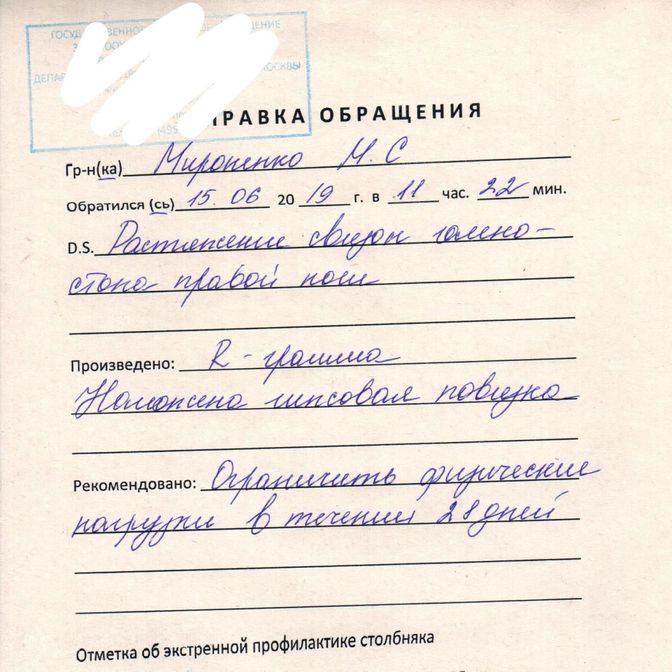 ГОСУД
ДЕПАР
МОСКВЫ
РАВКА ОБРАЩЕНИЯ
Гр-н(ка) Мироненко М.С
Обратился (сь) 15.06 2019 г. в 11 час. 22 мин.
D.S. Растяжение связок голено-
стопа правой ноги
Произведено: R-грамма
Наложена гипсовая повязка
Рекомендовано: Ограничить физические
нагрузки в течении 28 дней
Отметка об экстренной профилактике столбняка